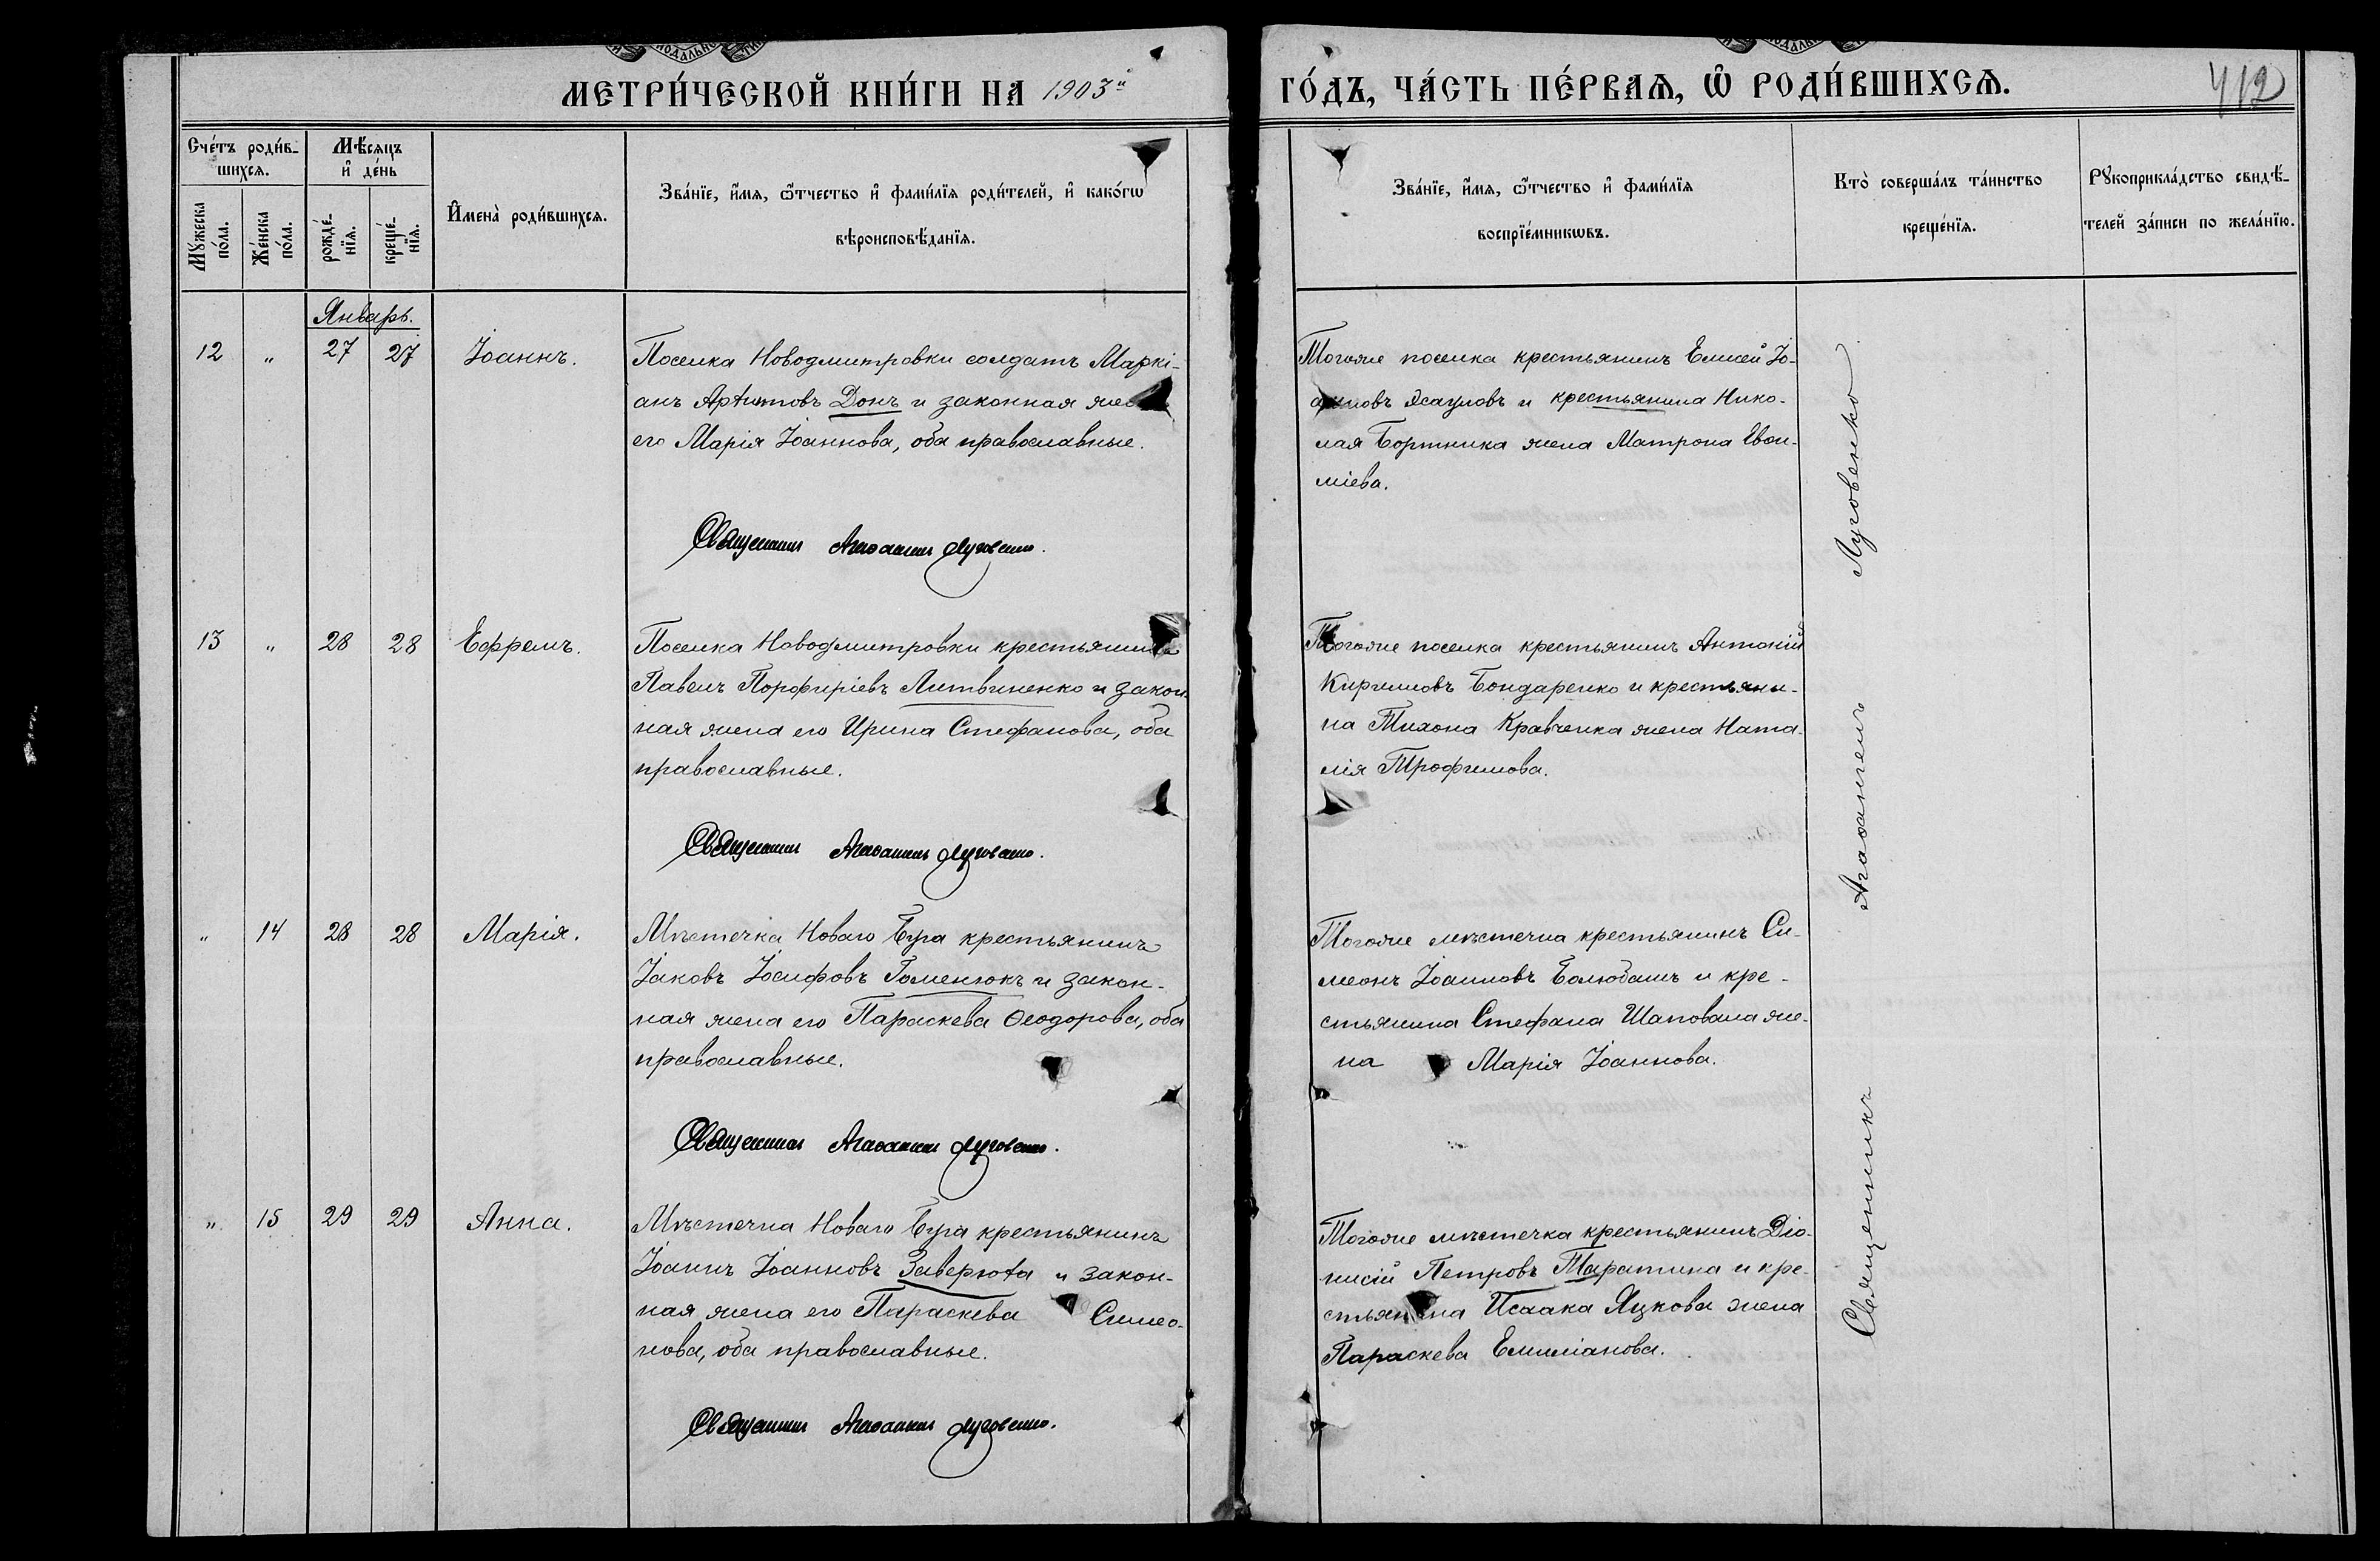 МЕТРИ́ЧЕСКОЙ КНИ́ГИ НА 1903й
ГО́ДЪ, ЧА́СТЬ ПЕ́РВАЯ, Ѡ РОДИ́ВШИХСЯ.
412
Сче́тъ роди́в-
шихся.
Мѣсяцъ
и де́нь
Мꙋжеска
по́ла.
Же́нска
по́ла.
рожде́-
нїя.
креще́-
нїя.
Имена̀ роди́вшихся.
Зва́нїе, и́мя, ѻ҆́тчество и фами́лїя роди́телей, и како́гѡ
вѣроисповѣ́данїя.
Зва́нїе, и́мя, ѻ҆́тчество и фами́лїя
воспрїе́мникѡвъ.
Кто̀ соверша́лъ та́инство
креще́нїя.
Рꙋкоприкла́дство свидѣ́-
телей за́писи по жела́нїю.
Январь.
12 " 27 27 Іоаннъ.
Поселка Новодмитровки солдатъ Маркі-
анъ Донъ и законная
его Марія Іоаннова, оба православные.
Священникъ Агаѳангелъ Луговенко.
Тогоже поселка крестьянинъ Елисей Іо-
Ясауловъ и крестьянина Нико-
лая Бортника жена Матрона Евѳи-
міева.
13 " 28 28 Ефремъ.
Поселка Новодмитровки крестьянинъ
Павелъ Порфиріевъ Литвиненко и закон-
ная жена его Ирина Стефанова, оба
православные.
Священникъ Агаѳангелъ Луговенко.
Тогоже поселка крестьянинъ Антоній
Кирилловъ Бондаренко и крестьяни-
на Тихона Кравченка жена Ната-
лія Трофимова.
" 14 28 28 Марія.
Мѣстечка Новаго Буга крестьянинъ
Іаковъ Іосифовъ Гоменюкъ и закон-
ная жена его Параскева Ѳеодорова, оба
православные.
Священникъ Агаѳангелъ Луговенко.
Тогоже мѣстечка крестьянинъ Си-
меонъ Іоанновъ Балюбашъ и кре-
стьянина Стефана Шаповала же-
на Марія Іоаннова.
" 15 29 29 Анна.
Мѣстечка Новаго Буга крестьянинъ
Іоаннъ Іоанновъ Заверюха и закон-
ная жена его Параскева Симео-
нова, оба православные.
Священникъ Агаѳангелъ Луговенко.
Тогоже мѣстечка крестьянинъ Діо-
нисій Петровъ Таратина и кре-
стьянина Исаака Яцкова жена
Параскева Емиліанова.
Священникъ Агаѳангелъ Луговенко